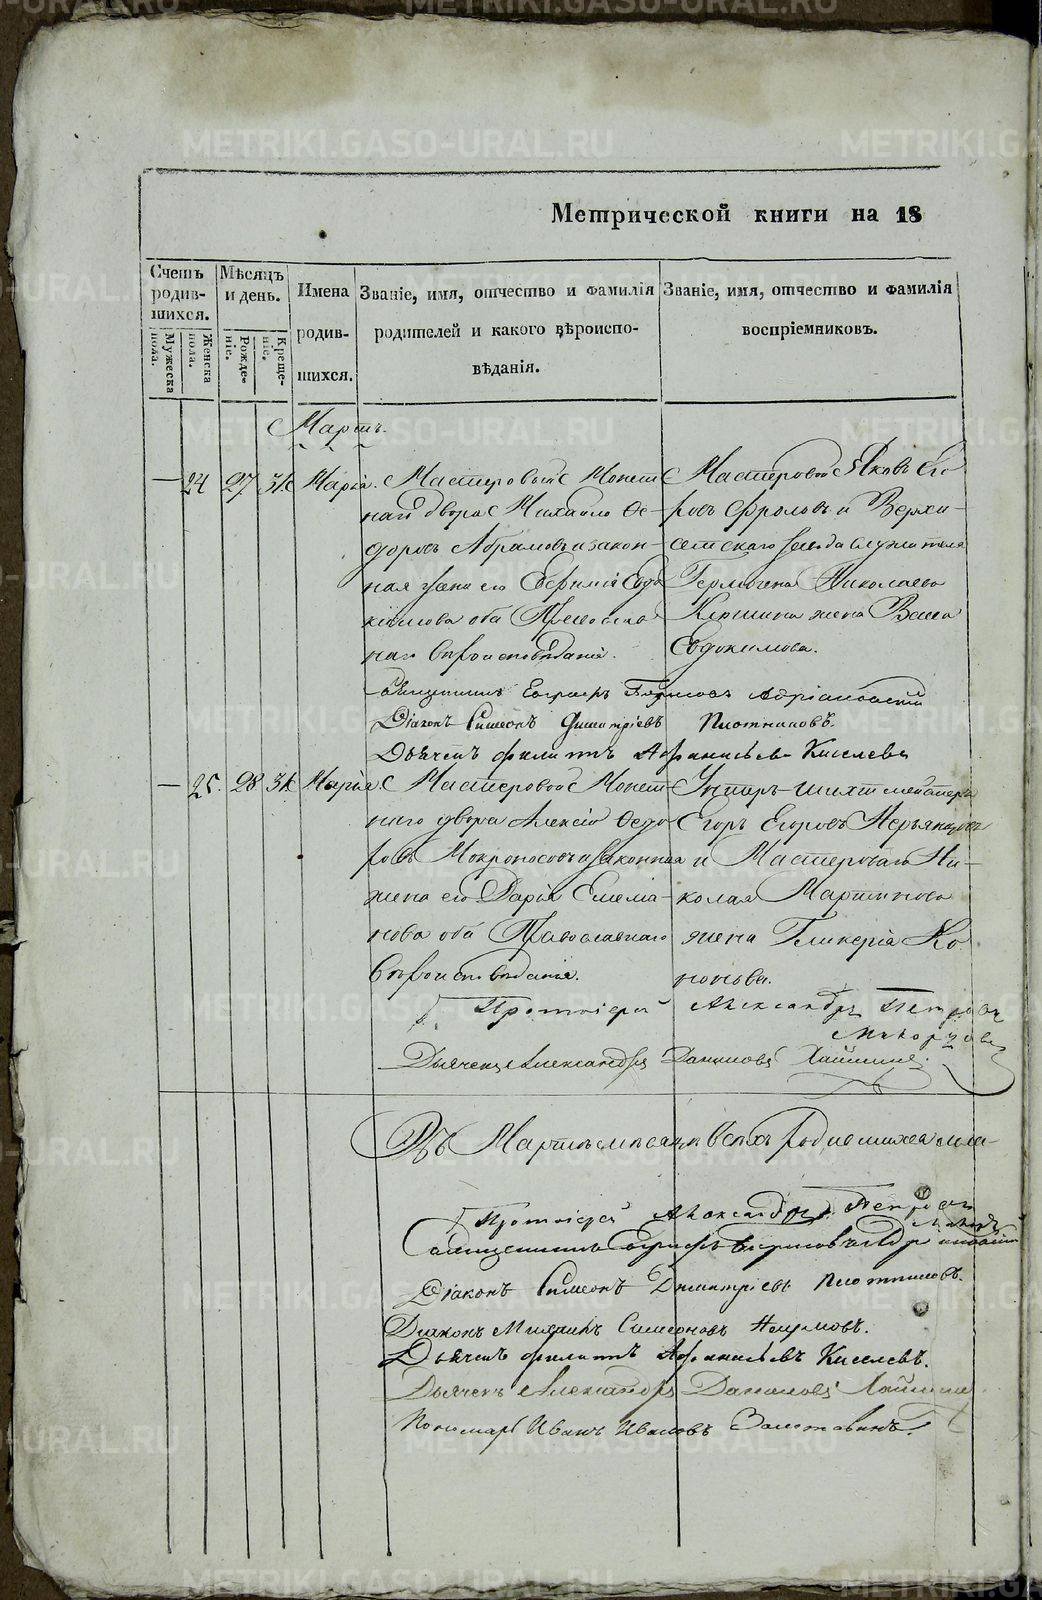 Метрической книги на 18
Счетъ родив-шихся.
Мѣсяцъ и день.
Имена родив-шихся.
Званіе, имя, отчество и фамилія родителей и какого вѣроиспо-вѣданія.
Званіе, имя, отчество и фамилія воспріемниковъ.
Мужеска пола.
Женска пола.
Рожде-ніе.
Креще-ніе.
Мартъ.
— 24 27 31 Марія. Мастеровой Монет-
наго двора Михайло Ѳе-
доровъ Абрамовъ и закон-
ная жена его Евфимія Евдо-
кимова оба Православ
наго вѣроисповѣданія.
Мастеровой Яковъ Его
ровъ Фроловъ и Верхи-
сетскаго завода служителя
Гермогена Николаева
жена Васса
Евдокимова.
Священникъ Евграфъ Борисовъ Адріановскій
Діаконъ Симеонъ Димитріевъ Плотниковъ.
Дьячекъ Филиппъ Афанасьевъ Киселевъ
— 25. 28 31 Марія. Мастеровой Монет-
наго двора Алексій Ѳедо
ровъ Мокроносовъ и законная
жена его Дарья Емелья-
нова оба Православнаго
вѣроисповѣданія.
Унтеръ-шихтмейстеръ
Егоръ Егоровъ
и Мастероваго Ни-
колая Мартинова
жена Гликерія Ко
нонова.
Протоіерей Александръ Петровъ
Дьячекъ Александръ Даниловъ
Въ Мартѣ мѣсяцѣ всѣхъ родившихся мла-
Протоіерей Александръ Петровъ
Священникъ Евграфъ Борисовъ Адріановскій
Діаконъ Симеонъ Димитріевъ Плотниковъ.
Діаконъ Михаилъ Симеоновъ Наумовъ.
Дьячекъ Филиппъ Афанасьевъ Киселевъ.
Дьячекъ Александръ Даниловъ
Пономарь Иванъ Ивановъ
METRIKI.GASO-URAL.RU